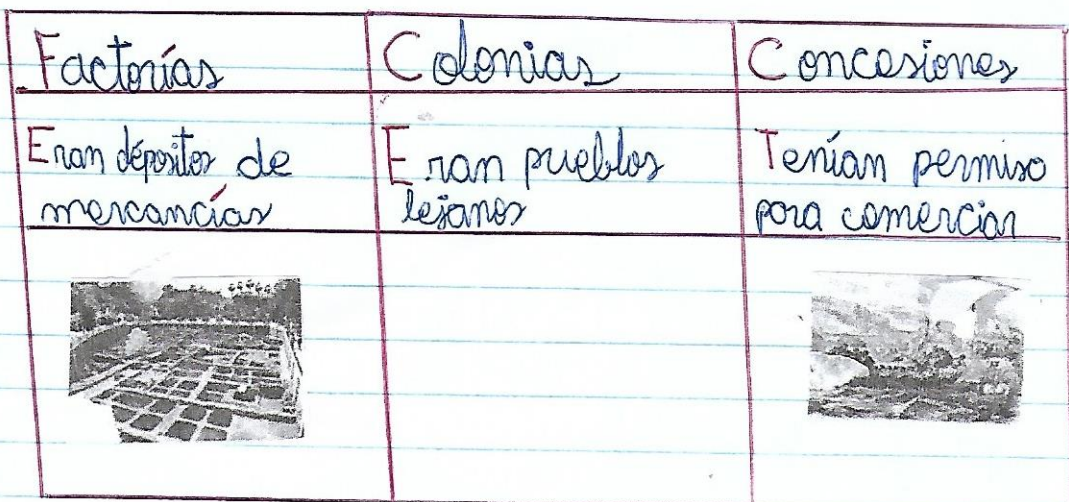 Factorías
Colonias
Concesiones
Eran dépositos de
mercancías
Eran pueblos
lejanos
Tenían permiso
para comerciar